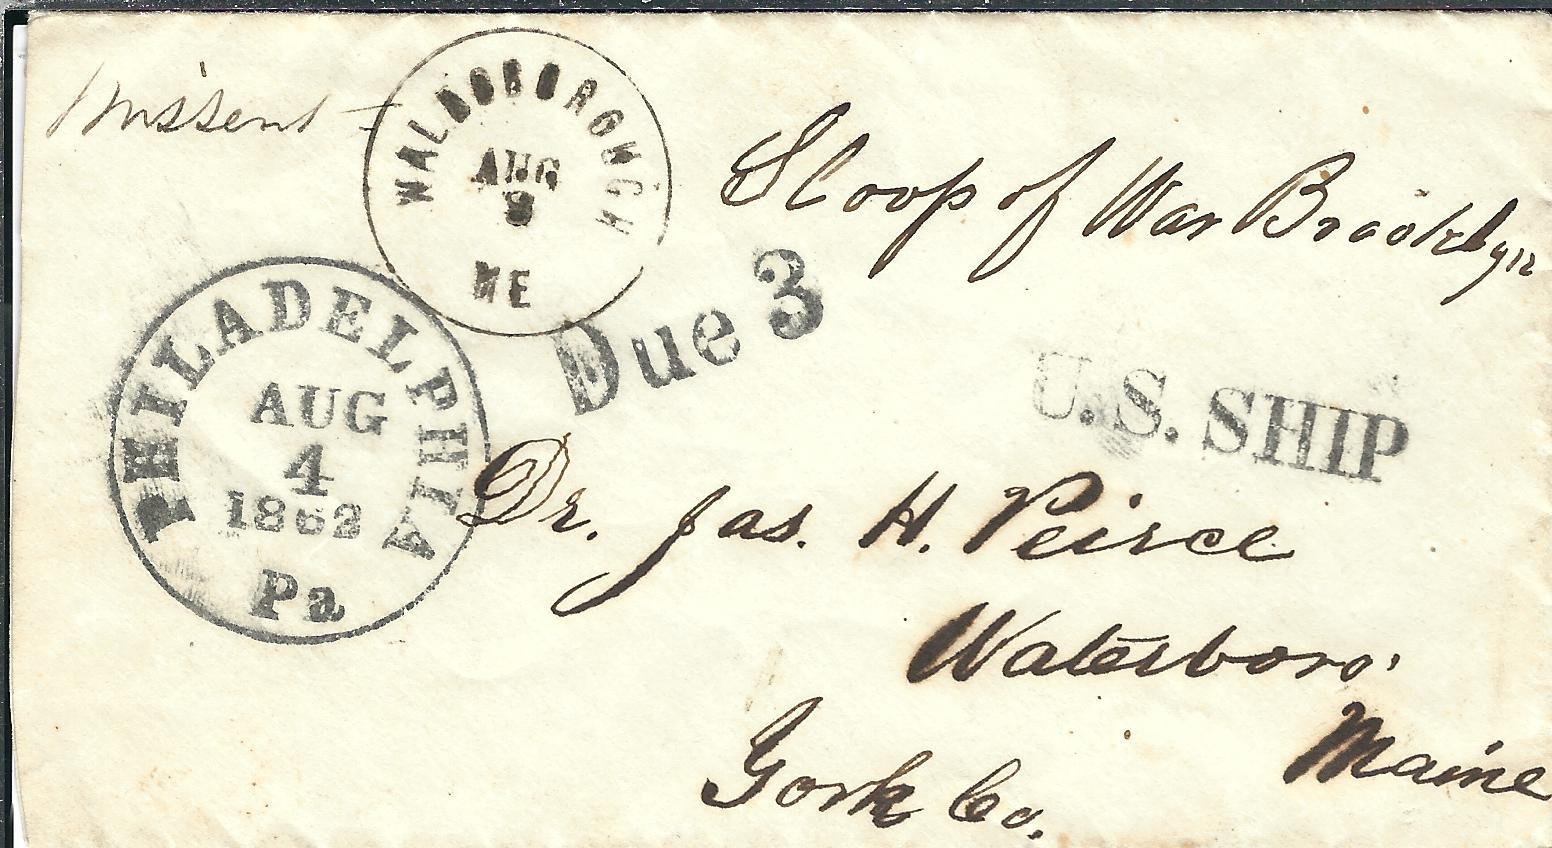 Missent -
WALDOBOROUGH
AUG
9
ME
Sloop of War Brooklyn
Due 3
U.S. SHIP
PHILADELPHIA
AUG
4
1862
Pa
Dr. Jas. H. Peirce
Waterboro.
Maine
York Co.